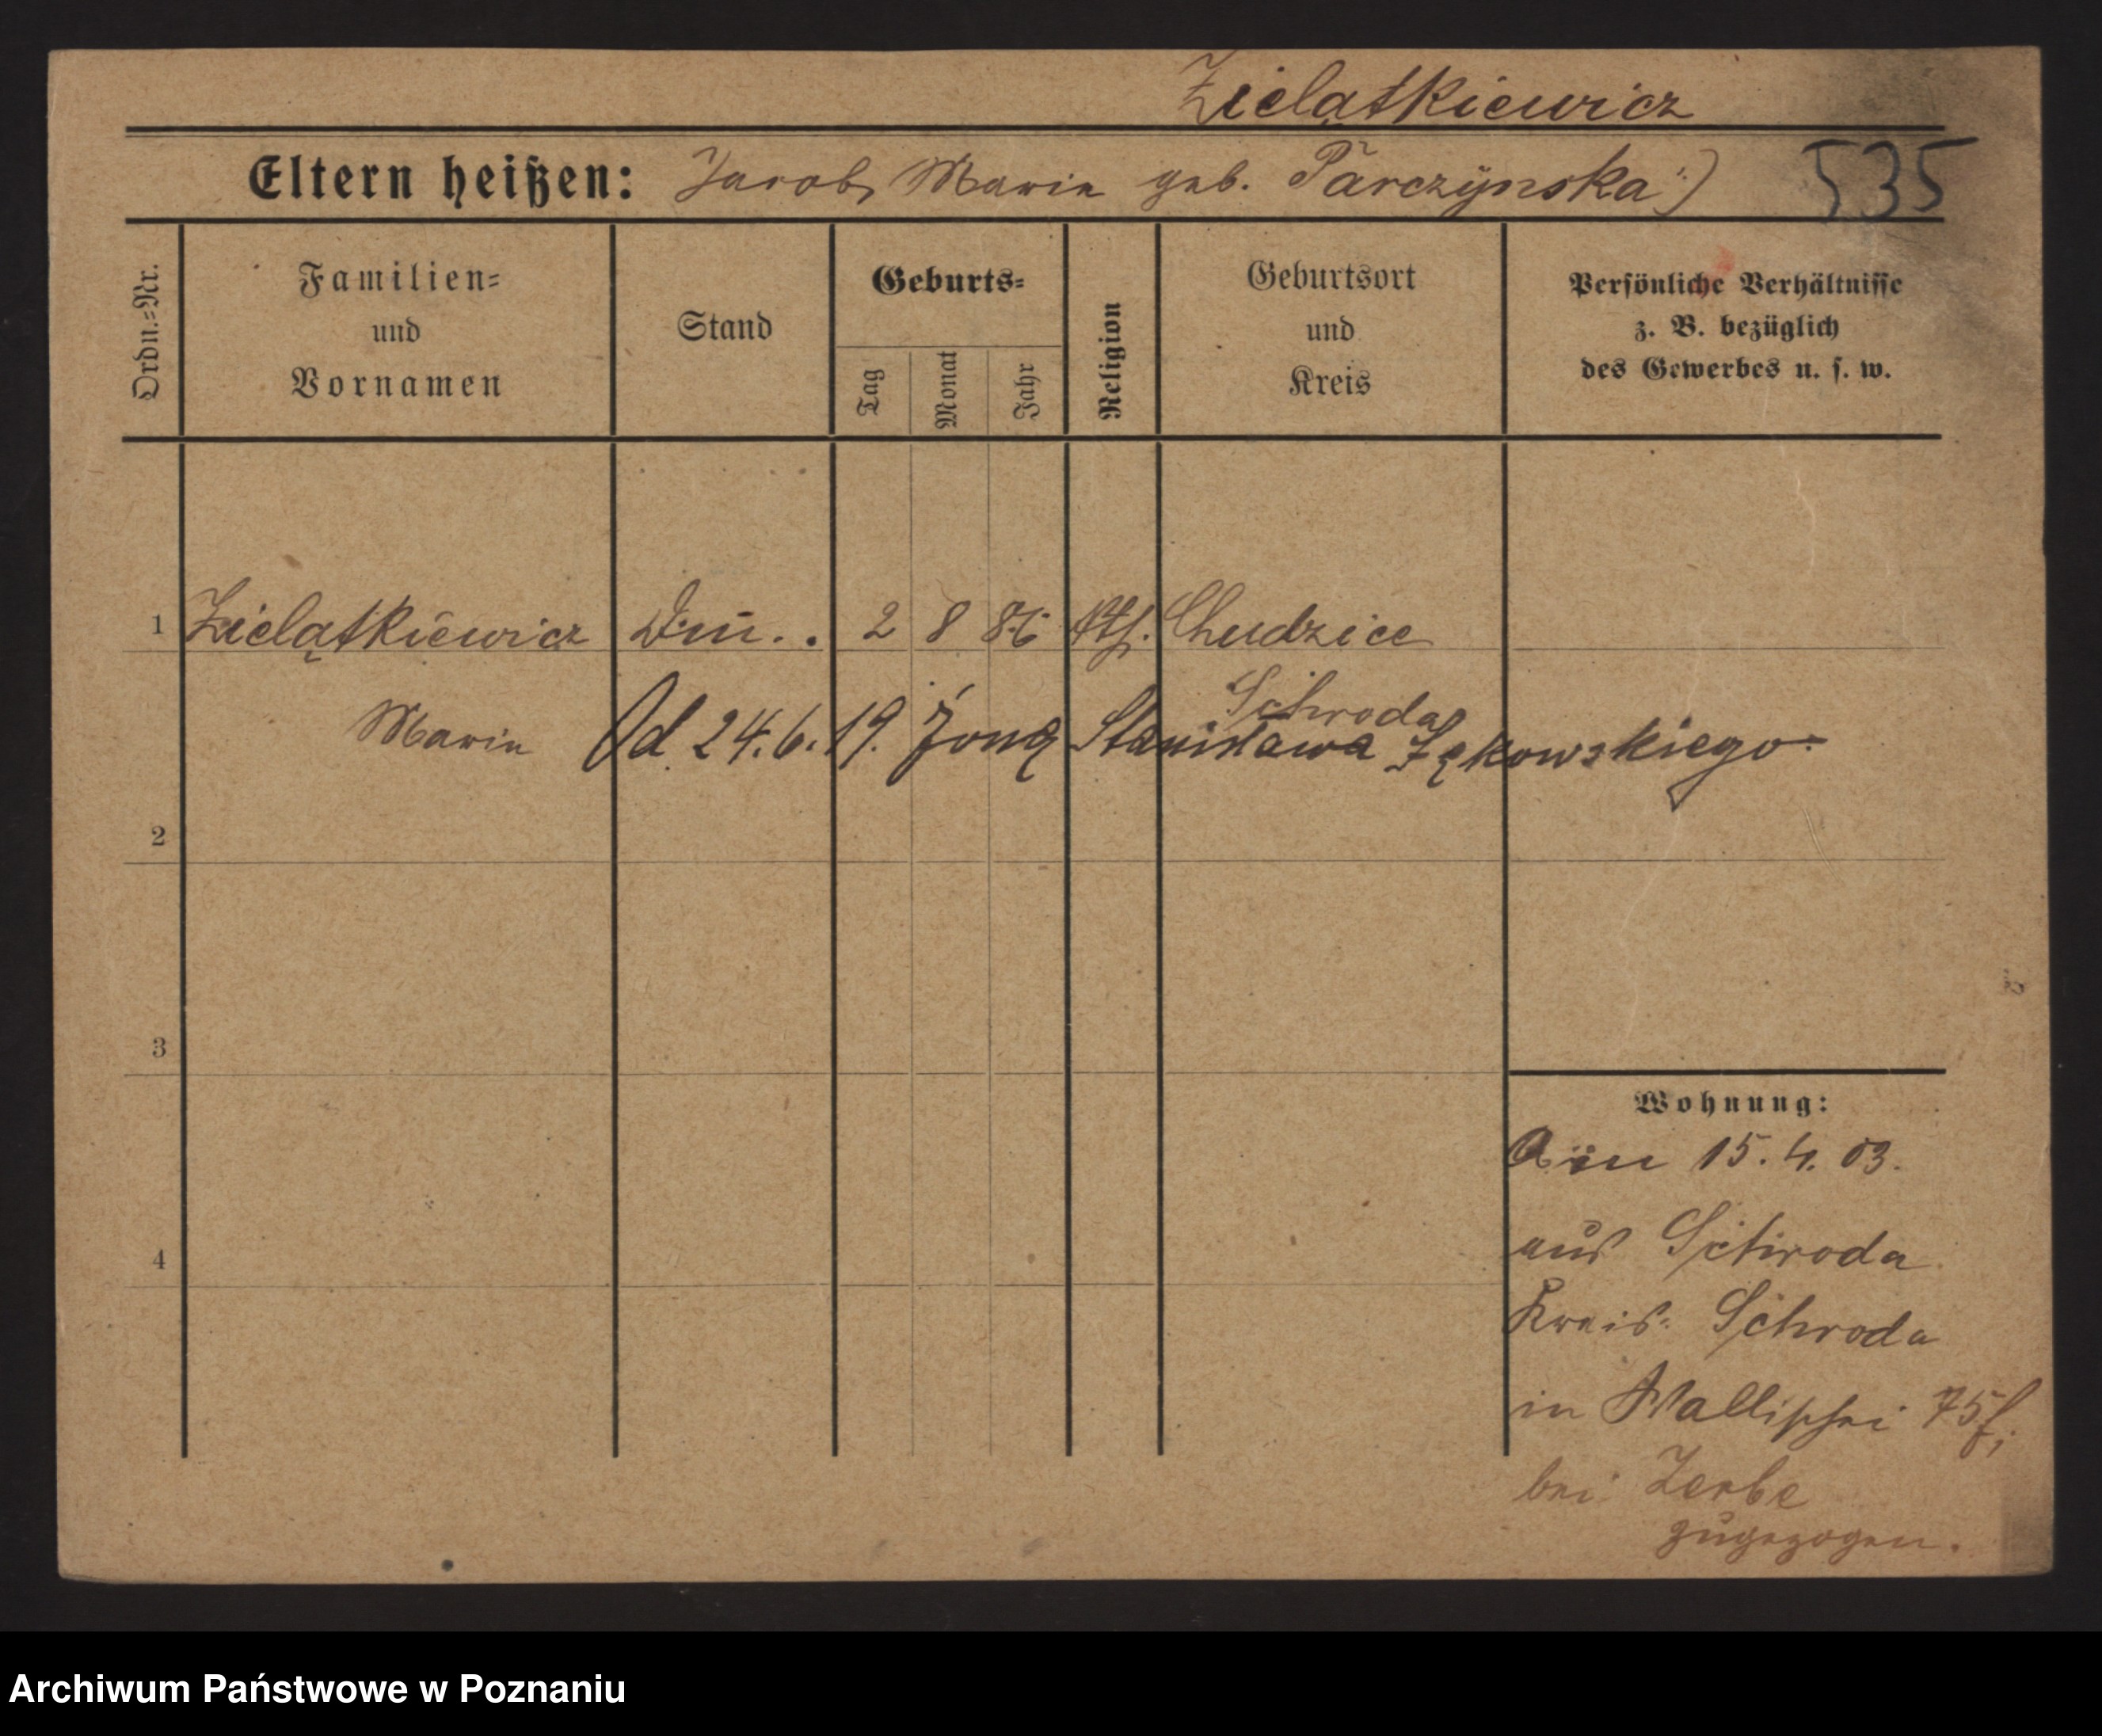 Zielątkiewicz
Eltern heißen: Jacob, Marie geb. Parczynska
535
Ordn.-Nr.
Familien-
und
Vornamen
Stand
Geburts-
Tag
Monat
Jahr
Religion
Geburtsort
und
Kreis
Persönliche Verhältnisse
z. B. bezüglich
des Gewerbes u. s. w.
1 Zielątkiewicz 2 8 86 Kth. Chudzice
Schroda
Marie Od 24.6.19. żoną Stanisława
2
3
4
Wohnung:
15.4.03.
aus Schroda
Kreis Schroda
in Wallischei 75
bei Zerbe
zugezogen.
Archiwum Państwowe w Poznaniu